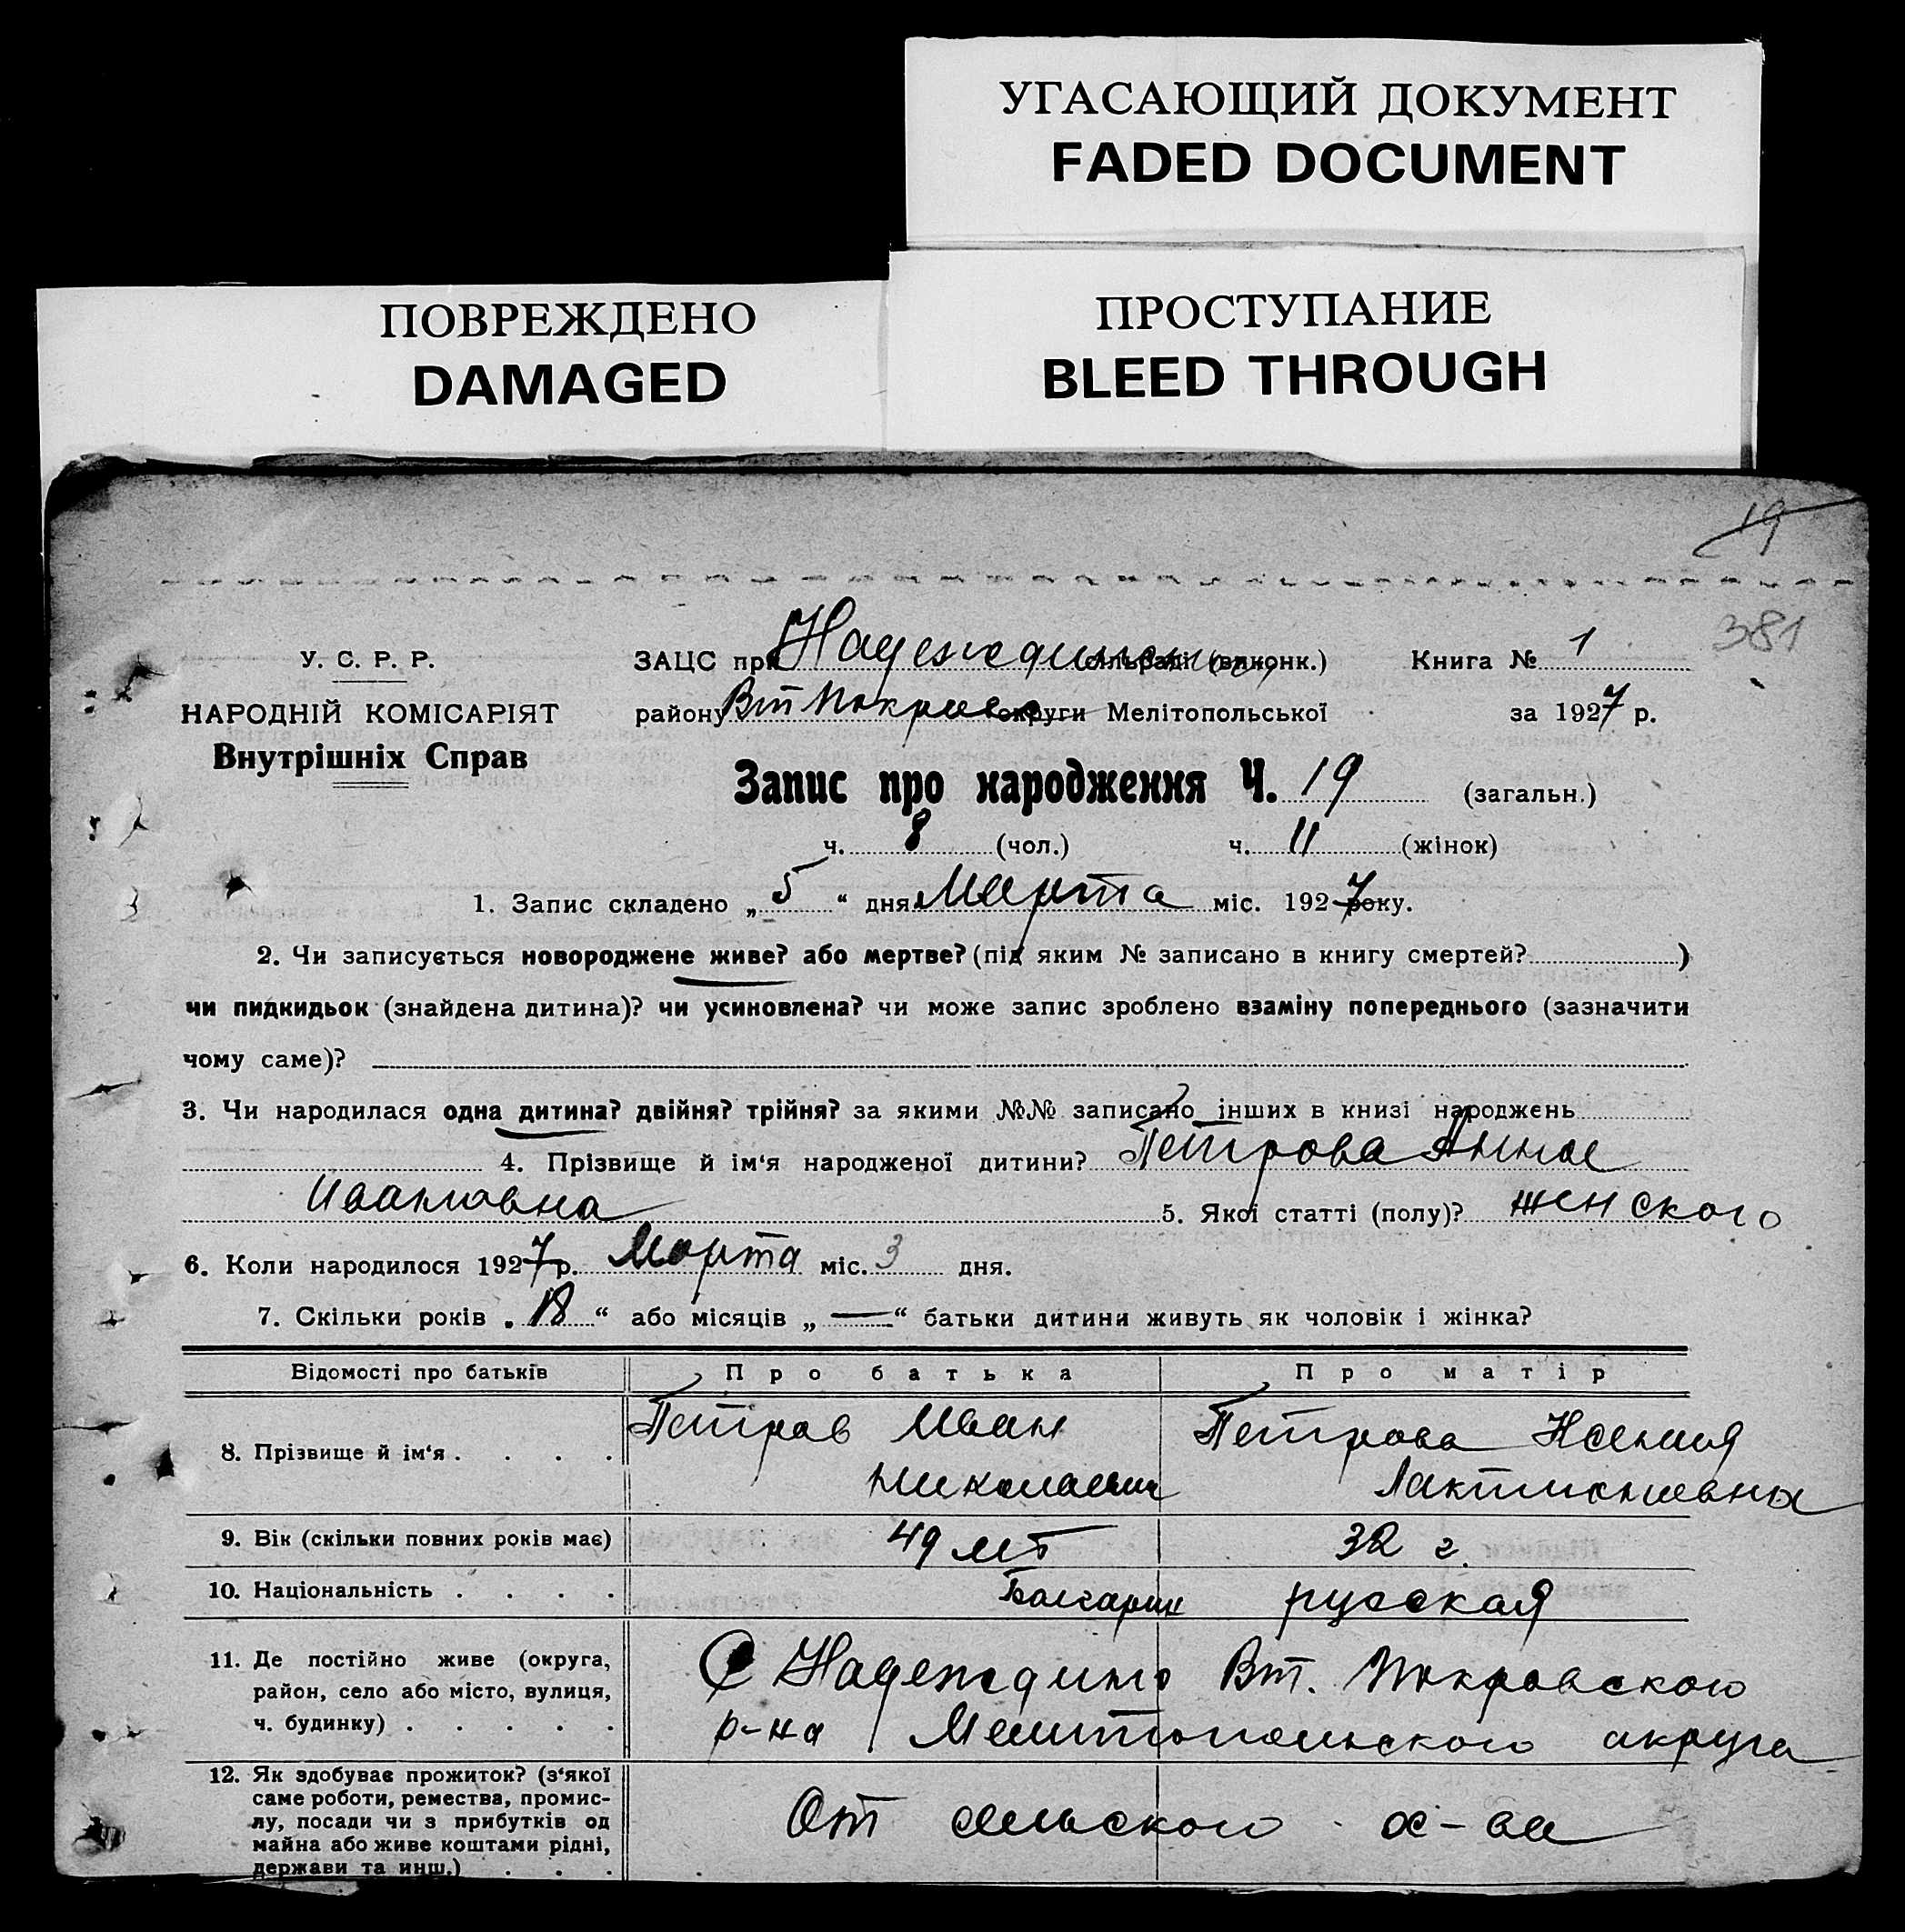 УГАСАЮЩИЙ ДОКУМЕНТ
FADED DOCUMENT
ПОВРЕЖДЕНО
DAMAGED
ПРОСТУПАНИЕ
BLEED THROUGH
19
381
У. С. Р. Р.
НАРОДНІЙ КОМІСАРІЯТ
Внутрішніх Справ
ЗАЦС при сільраді (виконк.) Книга № 1
району Вт Покровс округи Мелітопольської за 1927 р.
Запис про народження Ч. 19 (загальн.)
ч. 8 (чол.) ч. 11 (жінок)
1. Запис складено „ 5 “ дня Марта міс. 1927 року.
2. Чи записується новороджене живе? або мертве? (під яким № записано в книгу смертей? )
чи пидкидьок (знайдена дитина)? чи усиновлена? чи може запис зроблено взаміну попереднього (зазначити
чому саме)?
3. Чи народилася одна дитина? двійня? трійня? за якими №№ записано інших в книзі народжень
4. Прізвище й ім‘я народженої дитини? Петрова Анна
Ивановна 5. Якої статті (полу)? женского
6. Коли народилося 1927 р. Марта міс. 3 дня.
7. Скільки років „ 18 “ або місяців „ — “ батьки дитини живуть як чоловік і жінка?
Відомості про батьків Про батька Про матір
8. Прізвище й ім‘я . . . . Петров Иван Петрова Ксения
Николаевич
9. Вік (скільки повних років має) 49 лет 32 г.
10. Національність . . . . Болгарин русская
11. Де постійно живе (округа,
район, село або місто, вулиця,
ч. будинку) . . . . .
С Надеждино Вт. Покровского
р-на Мелитопольского округа
12. Як здобуває прожиток? (з‘якої
саме роботи, ремества, промис-
лу, посади чи з прибутків од
майна або живе коштами рідні,
держави та инш.) . . .
От сельского х-ва